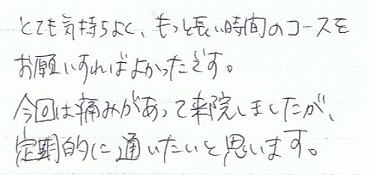 とても気持ちよく、もっと長い時間のコースを
お願いすればよかったです。
今回は痛みがあって来院しましたが、
定期的に通いたいと思います。